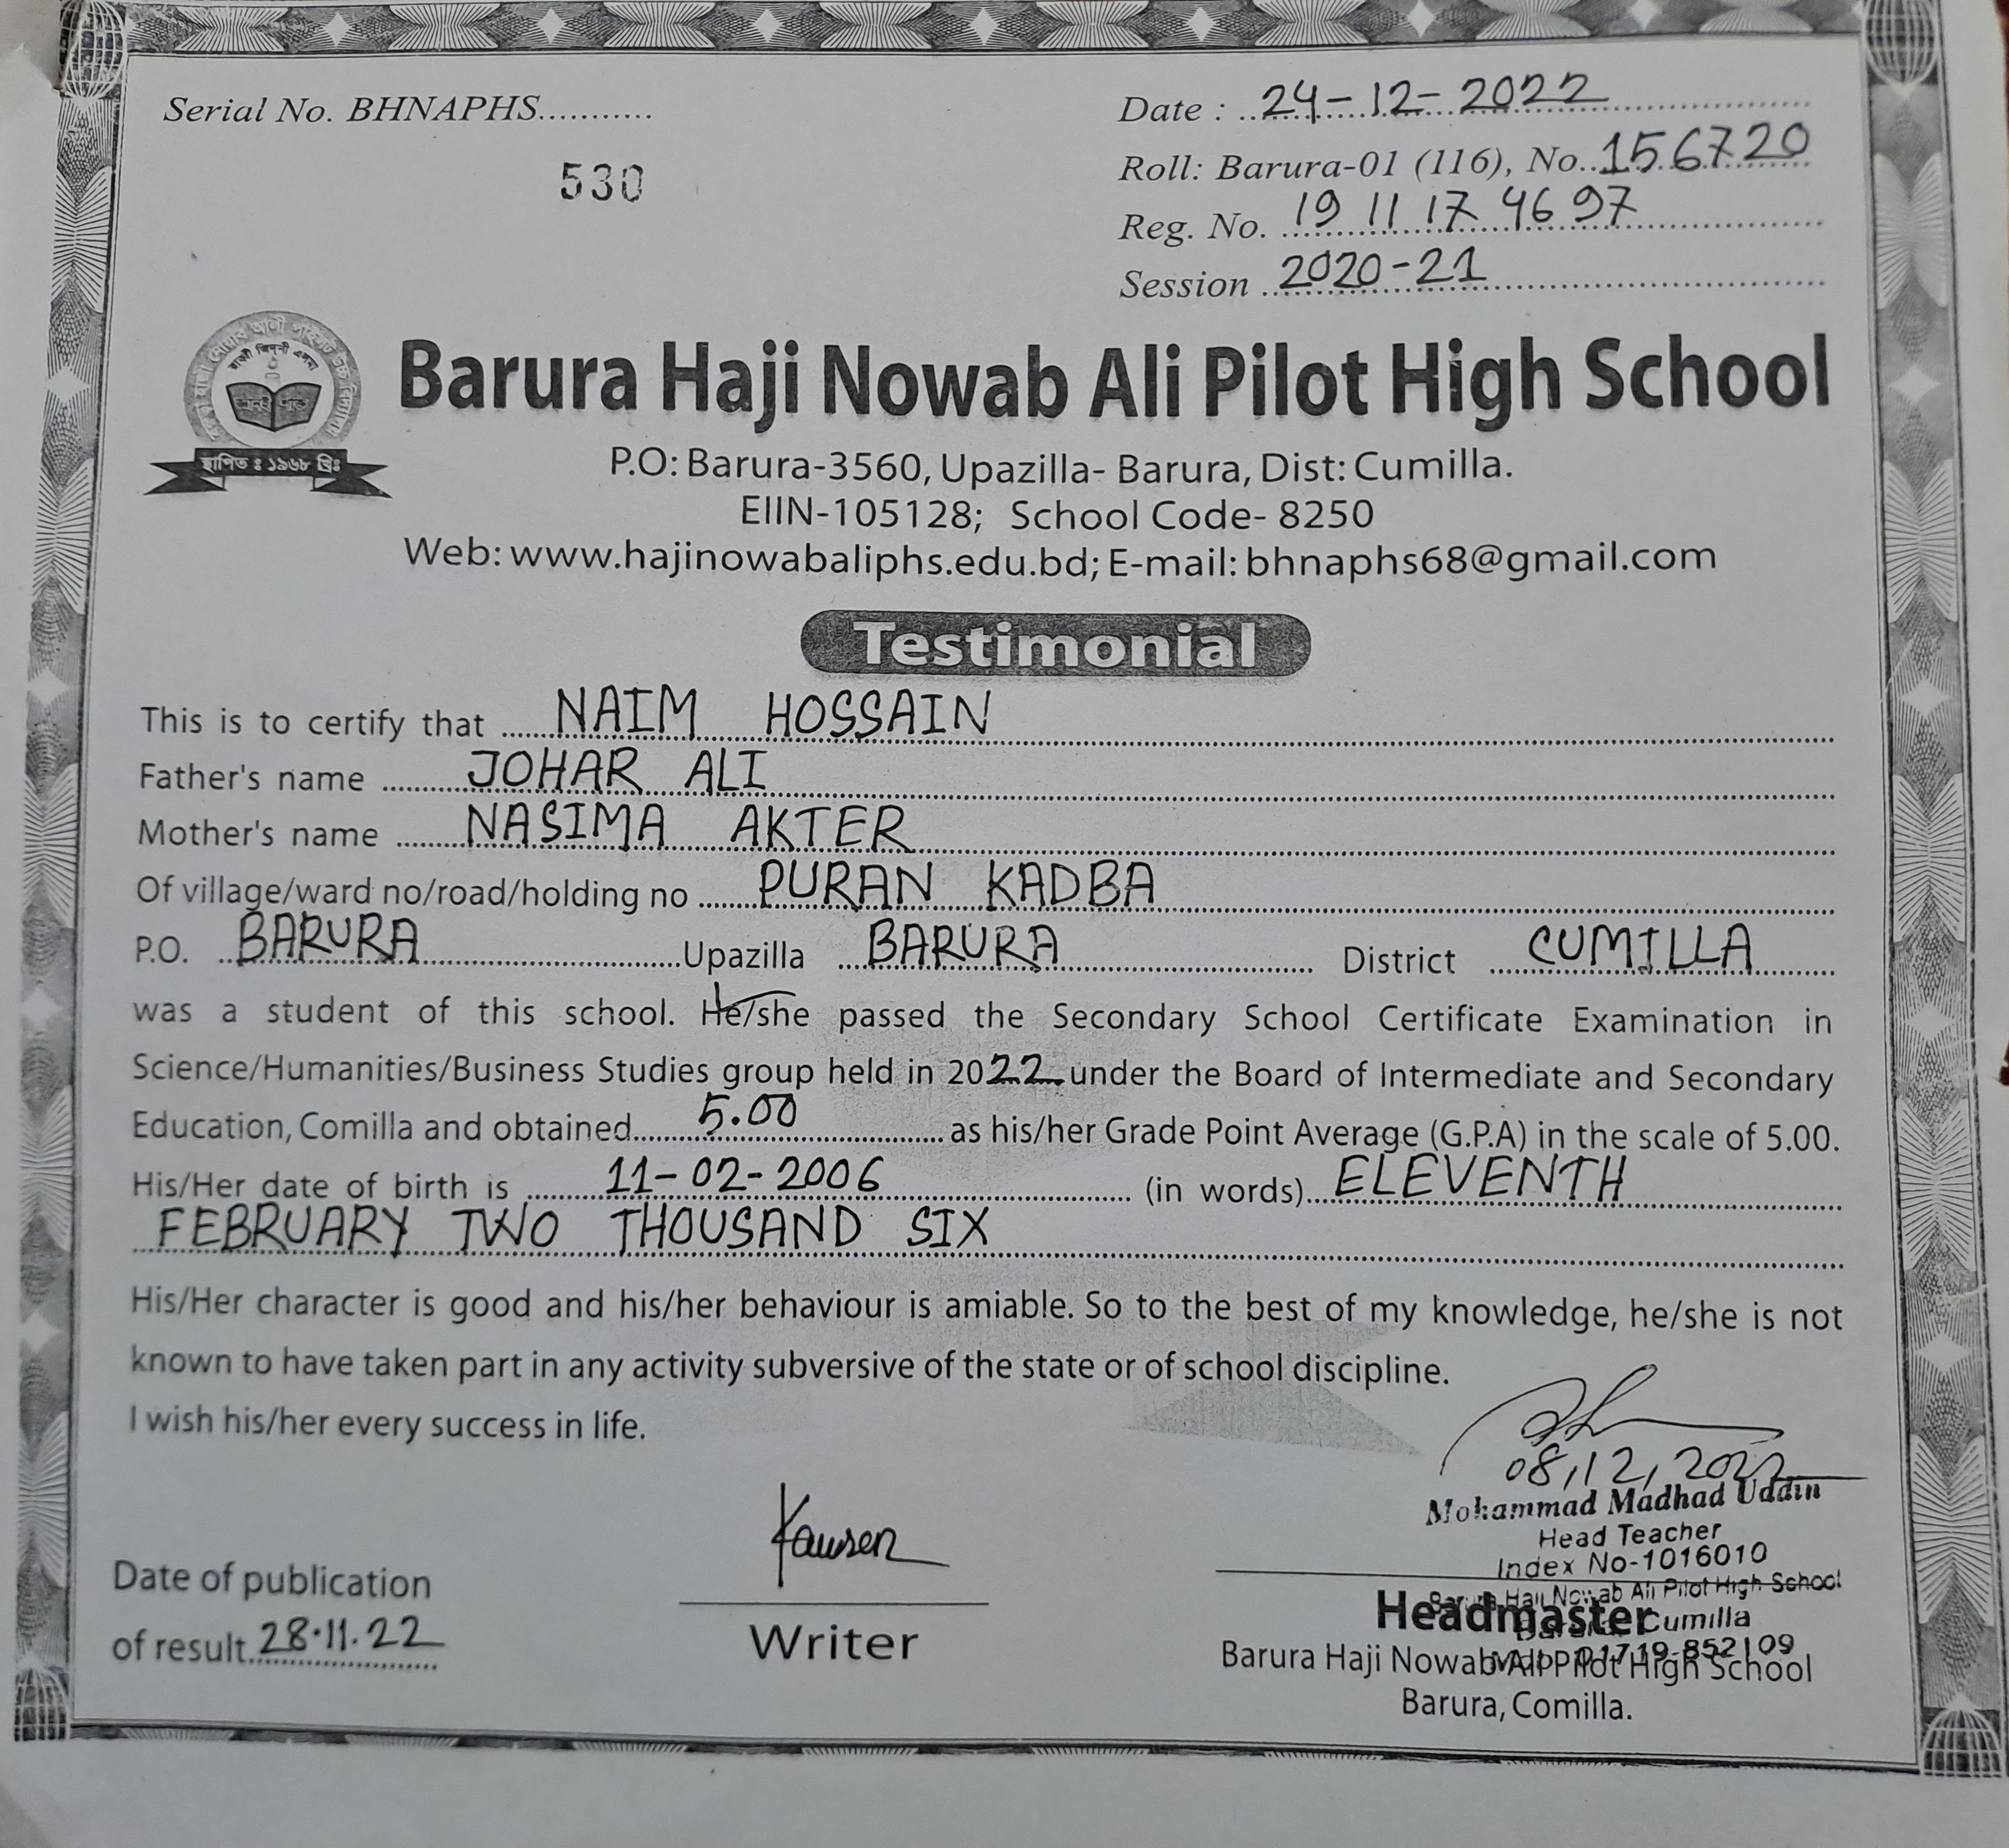 Serial No. BHNAPHS............
530
Date : 24-12-2022
Roll: Barura-01 (116), No. 156720
Reg. No. 19 11 17 46 97
Session 2020-21
স্থাপিত ঃ ১৯৬৮ খ্রিঃ
Barura Haji Nowab Ali Pilot High School
P.O: Barura-3560, Upazilla- Barura, Dist: Cumilla.
EIIN-105128; School Code- 8250
Web: www.hajinowabaliphs.edu.bd; E-mail: bhnaphs68@gmail.com
Testimonial
This is to certify that NAIM HOSSAIN
Father's name JOHAR ALI
Mother's name NASIMA AKTER
Of village/ward no/road/holding no PURAN KADBA
P.O. BARURA Upazilla BARURA District CUMILLA
was a student of this school. He/she passed the Secondary School Certificate Examination in
Science/Humanities/Business Studies group held in 2022 under the Board of Intermediate and Secondary
Education, Comilla and obtained 5.00 as his/her Grade Point Average (G.P.A) in the scale of 5.00.
His/Her date of birth is 11-02-2006 (in words) ELEVENTH
FEBRUARY TWO THOUSAND SIX
His/Her character is good and his/her behaviour is amiable. So to the best of my knowledge, he/she is not
known to have taken part in any activity subversive of the state or of school discipline.
I wish his/her every success in life.
08,12,2022
Mohammad Madhad Uddin
Head Teacher
Index No-1016010
Barura Haji Nowab Ali Pilot High School
Barura, Cumilla
01719-852109
Headmaster
Barura Haji Nowab Ali Pilot High School
Barura, Comilla.
Kawser
Writer
Date of publication
of result 28.11.22